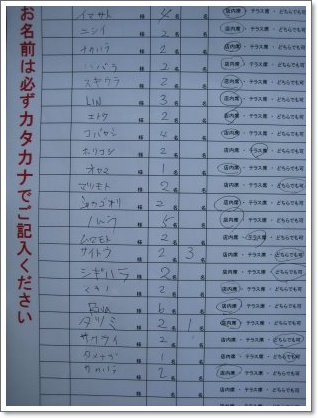 お名前は必ずカタカナでご記入ください
イマサト 様 4名 店内席・テラス席・どちらでも可
ニシイ 様 2名 店内席・テラス席・どちらでも可
ナカハラ 様 2名 店内席・テラス席・どちらでも可
ハバラ 様 2名 店内席・テラス席・どちらでも可
スギウラ 様 2名 店内席・テラス席・どちらでも可
LIN 様 3名 店内席・テラス席・どちらでも可
エトウ 様 2名 店内席・テラス席・どちらでも可
コバヤシ 様 4名 店内席・テラス席・どちらでも可
ホリコシ 様 2名 店内席・テラス席・どちらでも可
オヤマ 様 1名 店内席・テラス席・どちらでも可
マツモト 様 2名 店内席・テラス席・どちらでも可
様 2名 店内席・テラス席・どちらでも可
様 5名 店内席・テラス席・どちらでも可
様 2名 店内席・テラス席・どちらでも可
サイトウ 様 2名 3名 店内席・テラス席・どちらでも可
シギハラ 様 2名 店内席・テラス席・どちらでも可
様 2名 店内席・テラス席・どちらでも可
様 6名 店内席・テラス席・どちらでも可
タツミ 様 2名 1名 店内席・テラス席・どちらでも可
サクライ 様 2名 店内席・テラス席・どちらでも可
様 1名 店内席・テラス席・どちらでも可
様 2名 店内席・テラス席・どちらでも可